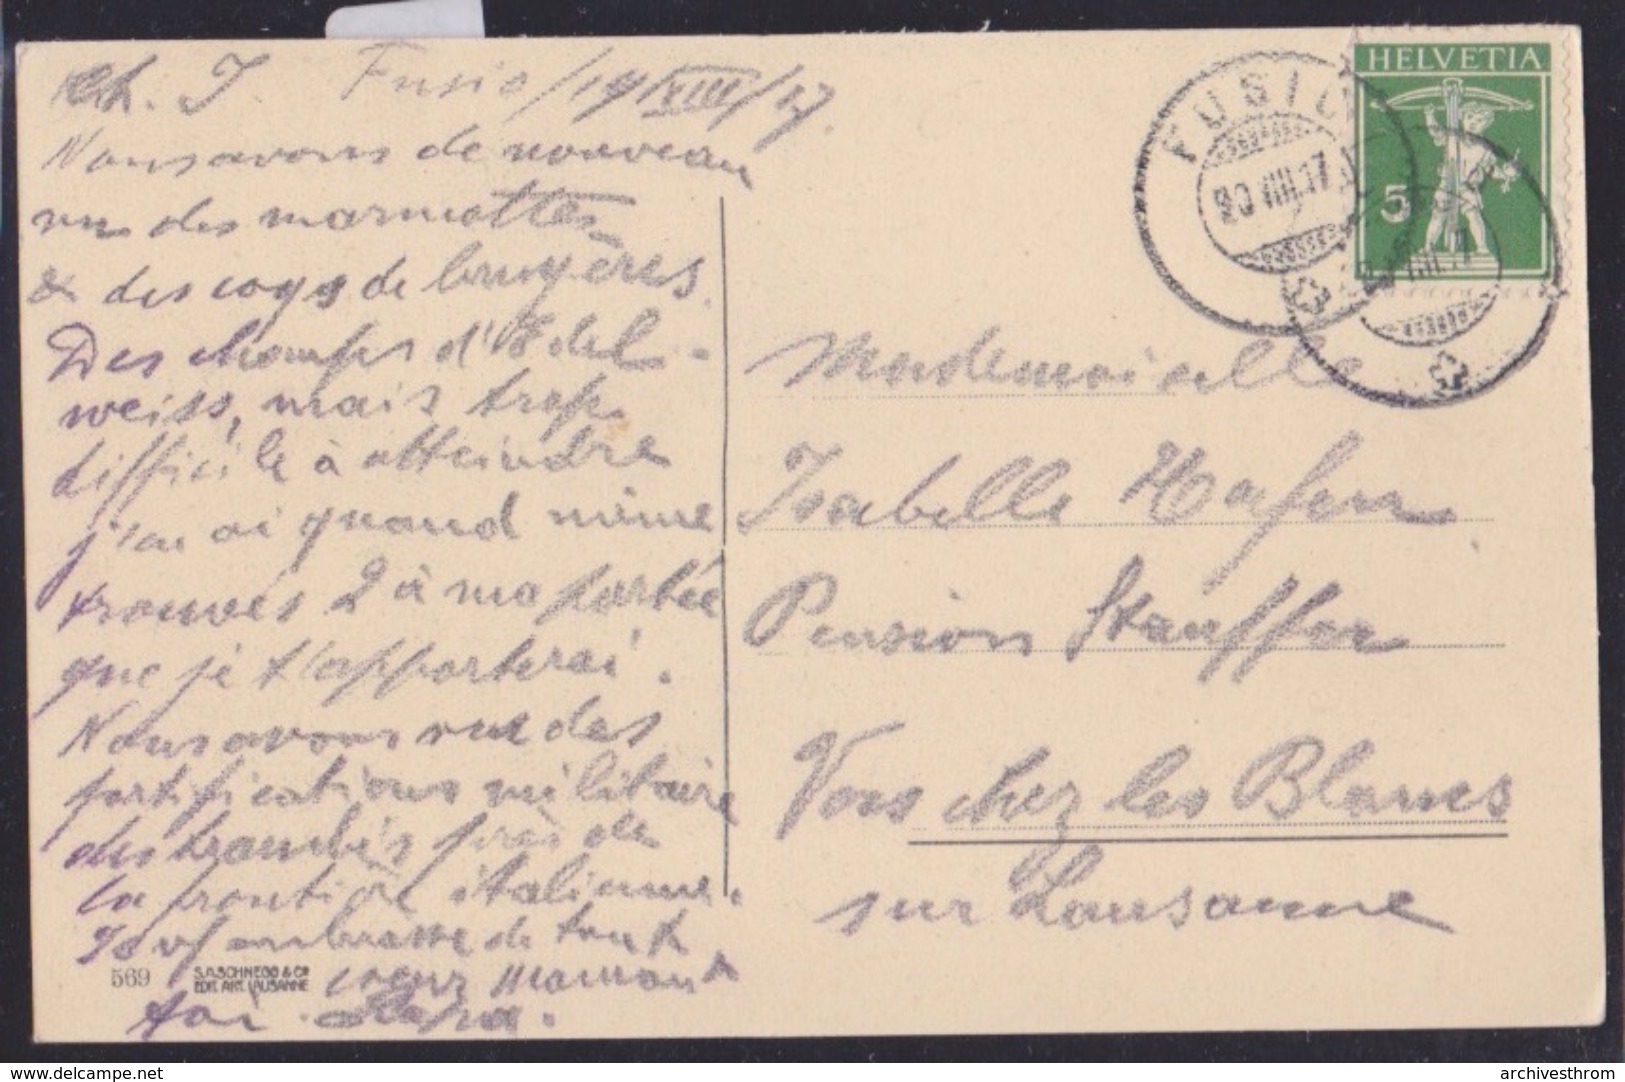 ch. I. Fusio/19/VIII/17.
Nous avons de nouveau
vu des marmottes
& des coqs de bruyères.
Des champs d'Edel-
weiss, mais trop
difficile à atteindre
j'en ai quand même
trouvés 2 à ma portée
que je t'apporterai.
Nous avons vue des
fortifications militaire
des tranchés près de
la frontière italienne.
Je vs embrasse de tout
cœur Maman &
toi. Papa.
569 S.A. SCHNEGG & Cie
EDIT. ART. LAUSANNE
HELVETIA
5
FUSIO
20 VIII.17
VIII.17
Mademoiselle
Isabelle Hafen
Pension Stauffer
Vers chez les Blancs
sur Lausanne
delcampe.net
archivesthrom